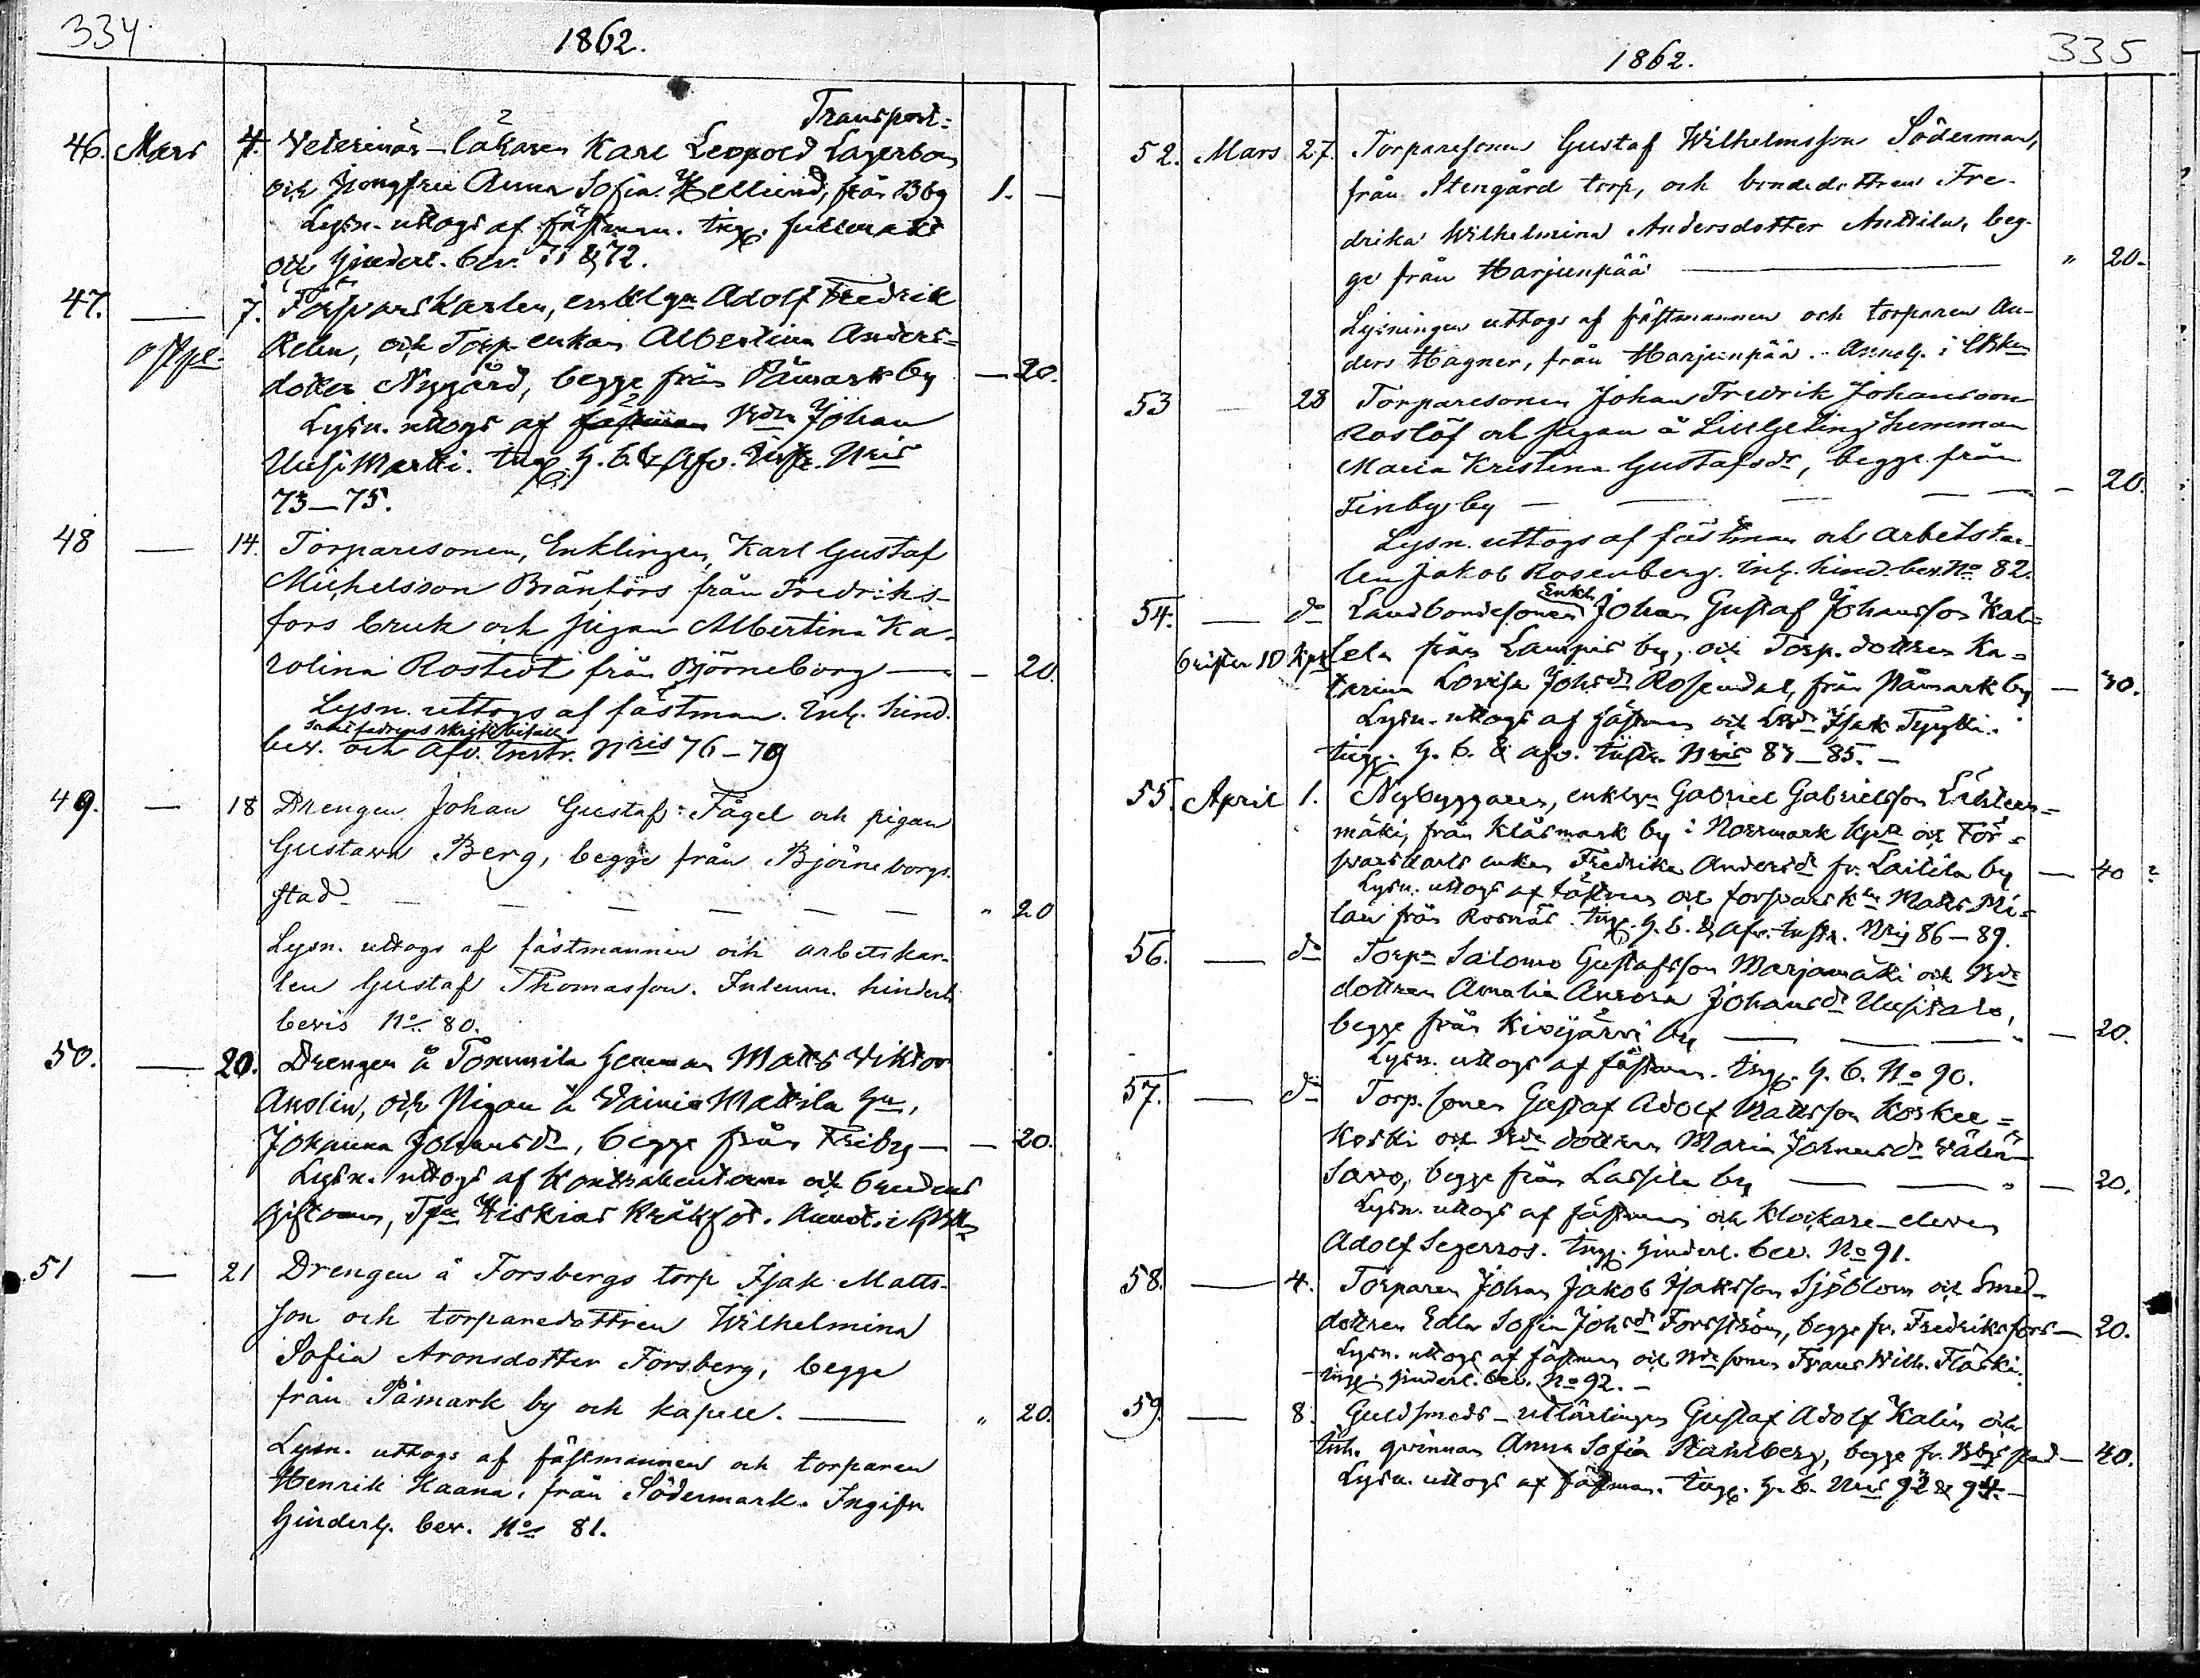 334
1862.
Transport:
46. Mars 4. Veterinär-läkaren Karl Leopold Lagerbom
och Jongfru Anna Sofia Hellund, från Bbg 1. —
Lysn. uttogs af fästman. Ing. fullmakt
och Hinderl. bev. 71 & 72.
47. — 7. Försvarskarlen, enklgn Adolf Fredrik
Relin, och Torp. enkan Albertina Anders=
dotter Nygård, begge från Påmark by — 20.
Lysn. uttogs af Bdn Johan
Uusi Martti. Ing. H. b. & Afv. Instr. Nris
73—75.
48 — 14. Torparesonen, Enklingen, Karl Gustaf
Michelsson Bränfors från Fredriks-
fors bruk och pigan Albertina Ka-
rolina Rostedt från Björneborg — — 20.
Lysn. uttogs af fästman. Inl. hind.
bev. och Afv. Instr. Nris 76—79
49. — 18 Drengen Johan Gustaf Fågel och pigan
Gustava Berg, begge från Björneborgs
stad — — — — — — " 20
Lysn. uttogs af fästmannen och arbetskar-
len Gustaf Thomasson. Inlemn. hinderl.
bevis No 80.
50. — 20. Drengen å Tommila Hemman Matts Viktor
Anolin, och Pigan å Wainio Mattila Hn,
Johanna Johansdr, begge från Friby — — 20.
Lysn. uttogs af Kontrahenterne och brudens
giftoman, Hiskias Kräkfot.
51 — 21 Drengen å Forsbergs torp Isak Matts-
son och torparedottren Wilhelmina
Sofia Aronsdotter Forsberg, begge
från Påmark by och kapell. — " 20.
Lysn. uttogs af fästmannen och torparen
Henrik Haana, från Södermark. Ingifv.
Hinderl. bev. No 81.
335
1862.
52. Mars 27. Torparesonen Gustaf Wilhelmsson Söderman,
från Stengård torp, och bondedottren Fre-
drika Wilhelmina Andersdotter Anttila, beg-
ge från Harjunpää — " 20.
Lysningen uttogs af fästmannen och torparen An-
ders Hagner, från Harjunpää.
53 — 28 Torparesonen Johan Fredrik Johansson
Roslöf och pigan å Lill Geting hemman
Maria Kristina Gustafsdr, begge från
Finby by — — — — — — 20.
Lysn. uttogs af fästman och arbetska-
len Jakob Rosenberg. Inl. hind. bev. No 82.
Enkl.
54. — do Landbondesonen Johan Gustaf Johansson Kal=
lela från Lampis by, och Torp. dottren Ka=
tarina Lovisa Johsdr Rosendal, från Påmark by — 30.
Lysn. uttogs af fästman och Isak Tyykki.
Ing. H. b. & afv. Instr. Nris 83—85. —
55. April 1. Nybyggaren, enklgn Gabriel Gabrielsson Lähteen=
mäki, från Klåsmark by i Norrmark Kpll och För=
svarskarls enkan Fredrika Andersdr fr. Laitila by — 40
Lysn. uttogs af fästman och försvarsk. Matts
från Rosnäs. Ing. H. b. & Afv. Instr. Nris 86—89.
56. — do Torpn Salomo Gustafsson Marjamäki och Bde
dottren Amalia Aurora Johansdr Uusitalo,
begge från Kivijärvi by — — — 20.
Lysn. uttogs af fästman. Ing. H. b. No 90.
57. — do Torp. sonen Gustaf Adolf Mattsson Koskee=
koski och Bde dottren Maria Johansdr Väliä=
Savo, begge från Lassila by — — " — 20.
Lysn. uttogs af fästman och Klockare-eleven
Adolf Segerros. Ing. Hinderl. bev. No 91.
58. — 4. Torparen Johan Jakob Isaksson Sjöblom och Smed-
dottren Edla Sofia Johsdr Forsström, begge fr. Fredriksfors — 20.
Lysn. uttogs af fästman och Bde sonen Frans Wilh. Fläski.
Ing. Hinderl. bev. No 92. —
59 — 8. Guldsmeds-utlärlingen Gustaf Adolf Kalin och
qvinnan Anna Sofia Stahlberg, begge fr. Bbgs stad — 40.
Lysn. uttogs af fästman. Ing. H. b. Nris 93 & 94. —